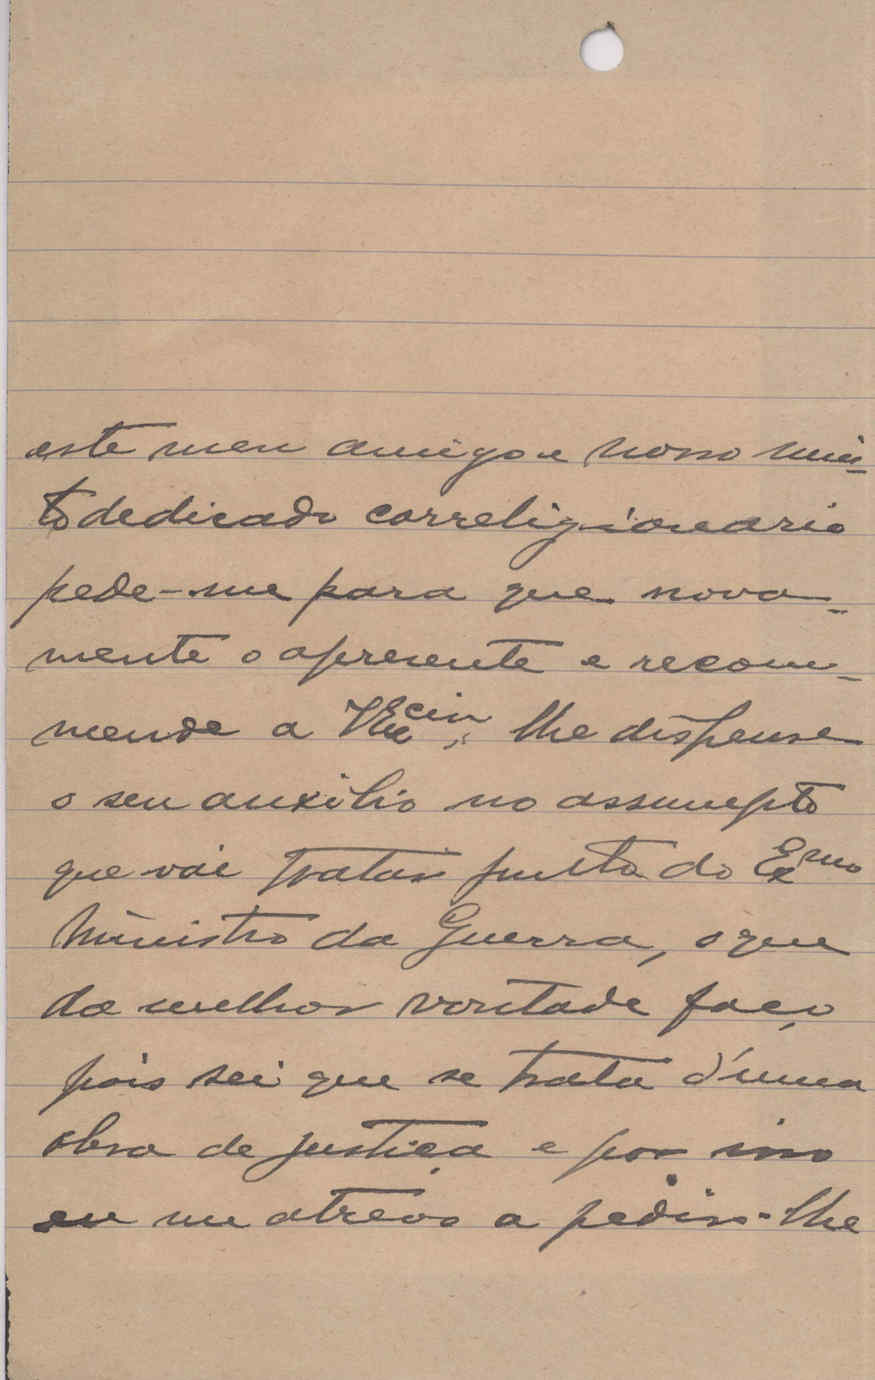 este meu amigo e nosso mui-
to dedicado correligionario
pede-me para que nova-
mente o apresente e recom-
mende a VExcia, lhe dispense
o seu auxilio no assumpto
que vai tratar junto do Exmo
Ministro da Guerra, o que
da melhor vontade faço
pois sei que se trata d'uma
obra de justiça e por isso
eu me atrevo a pedir-lhe